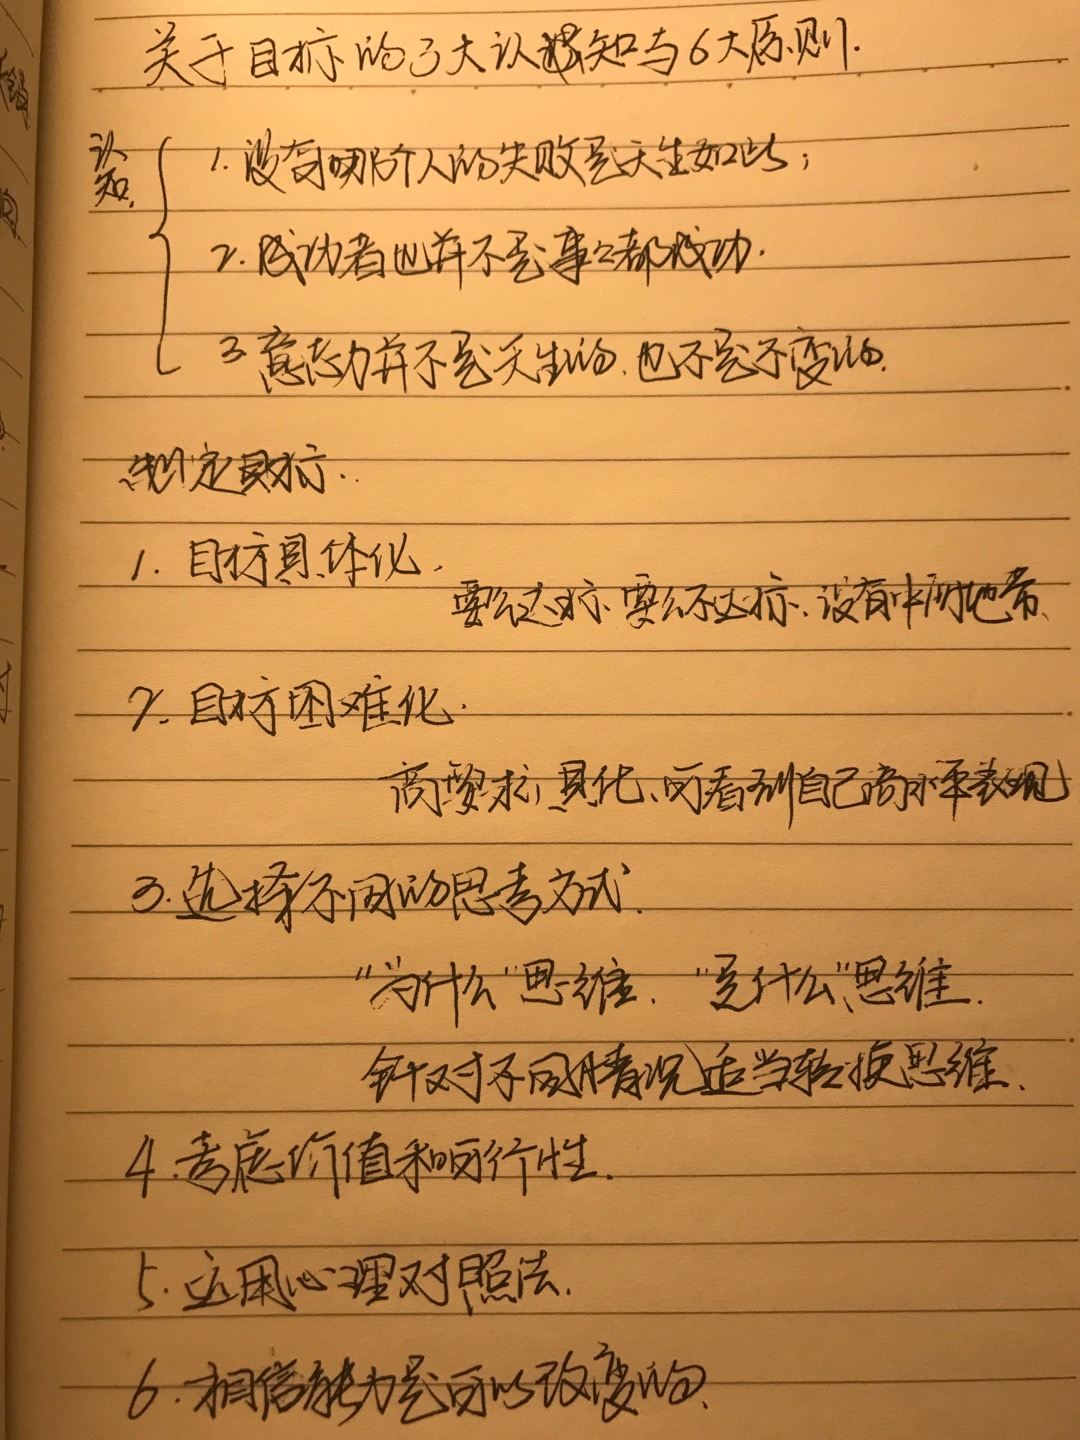 关于目标的3大认知与6大原则.
认知
1. 没有哪个人的失败是天生如此;
2. 成功者也并不是事事都成功.
3 意志力并不是天生的.也不是不变的.
制定目标.
1. 目标具体化.
要么达标 要么不达标、没有中间地带、
2. 目标困难化.
高要求,具化、可看到自己高水平表现
3. 选择不同的思考方式.
“为什么”思维、“是什么”思维.
针对不同情况适当转换思维、
4. 考虑价值和可行性.
5. 运用心理对照法.
6. 相信能力是可以改变的、